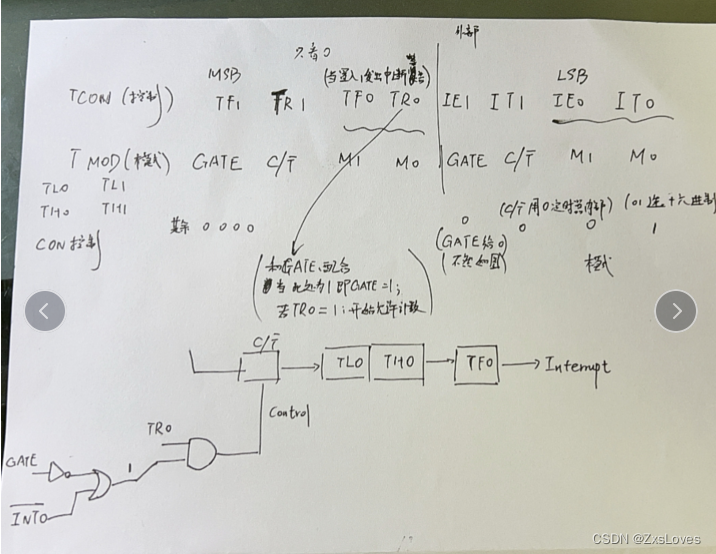 外部
MSB
(当置入1发出中断警告)
LSB
TCON (控制) TF1 TR1 TF0 TR0 IE1 IT1 IE0 IT0
TMOD (模式) GATE C/T̅ M1 M0 GATE C/T̅ M1 M0
TL0 TL1
TH0 TH1
CON 控制
0 0 0 0
(C/T̅ 用0定时器内部) (01选十六进制)
0 0 0 1
(GATE 给0)
模式
和GATE 配合
当此处为1 即GATE=1;
若TR0=1:开始允许计数
C/T̅
TL0 TH0 TF0 Interrupt
Control
TR0
GATE
1
I̅N̅T̅0̅
CSDN @ZxsLoves